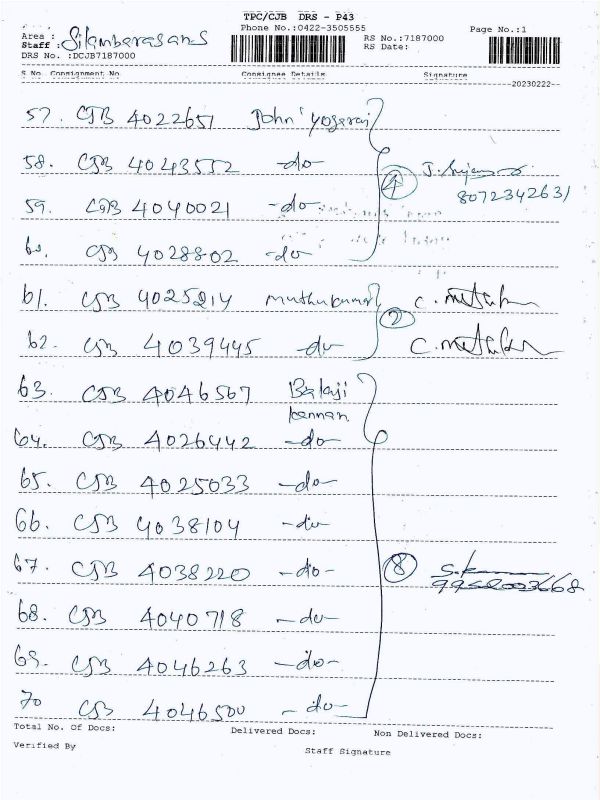 TPC/CJB DRS - P43
Phone No.:0422-3505555
Area :
Staff : Silambarasan S
DRS No. :DCJB7187000
RS No.:7187000
RS Date:
Page No.:1
S No. Consignment No. Consignee Details Signature
20230222
57. CJB 4022651 John Yogaraj
58. CJB 4043552 -do-
59. CJB 4040021 -do-
60. CJB 4028802 -do-
4
8072342631
61. CJB 4025214 muthukumar C. muthuku
62. CJB 4039445 -do- C. muthuku
2
63. CJB 4046567 Balaji
kannan
64. CJB 4026442 -do-
65. CJB 4025033 -do-
66. CJB 4038104 -do-
67. CJB 4038220 -do- 8
68. CJB 4040718 -do-
69. CJB 4046263 -do-
70 CJB 4046500 -do-
Total No. Of Docs: Delivered Docs: Non Delivered Docs:
Verified By Staff Signature